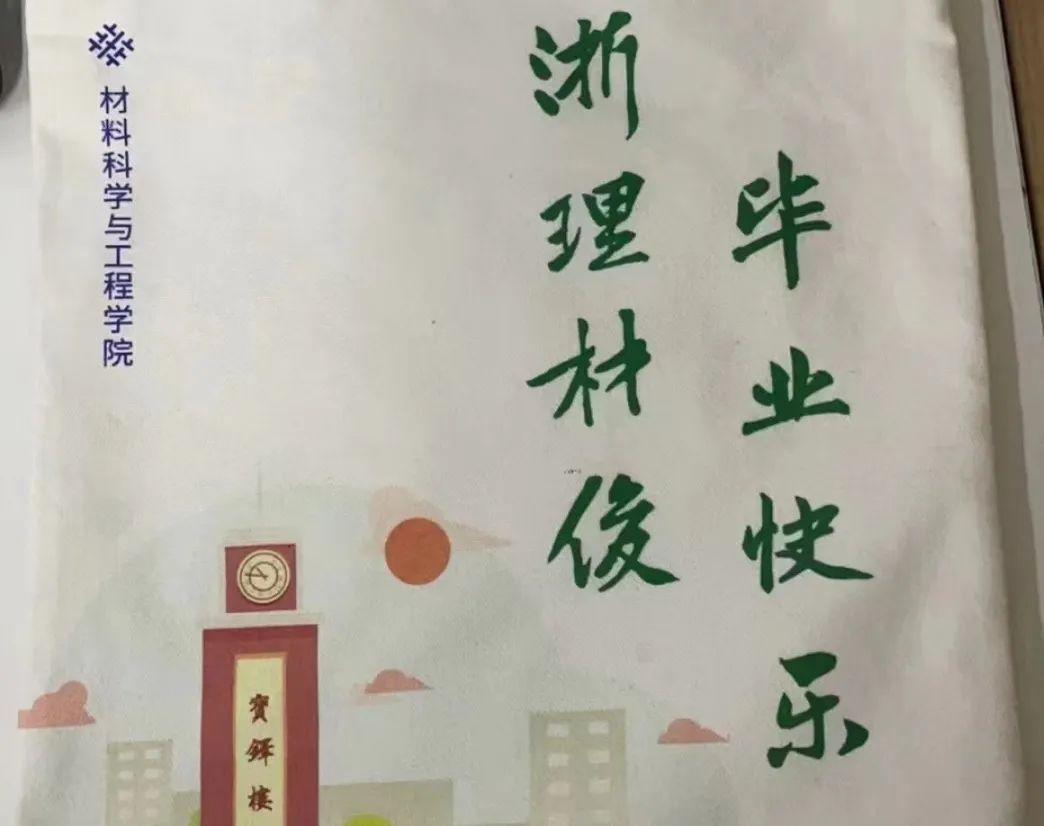 毕业快乐
浙理材俊
材料科学与工程学院
寶鐸樓